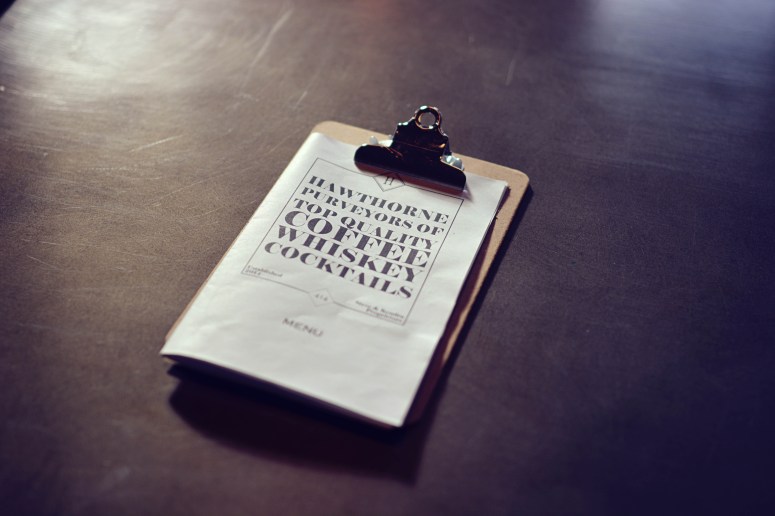 H
HAWTHORNE
PURVEYORS OF
TOP QUALITY
COFFEE
WHISKEY
COCKTAILS
Established
MENU